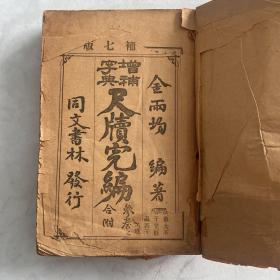 補七版
金雨埸 編著
增補
字典
尺牘完編
合附
同文書林 發行